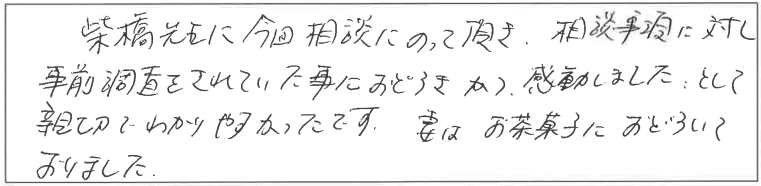 柴橋先生に今回相談にのって頂き、相談事項に対し
事前調査をされていた事におどろきかつ、感動しました。そして
親切でわかりやすかったです。妻はお茶菓子におどろいて
おりました。